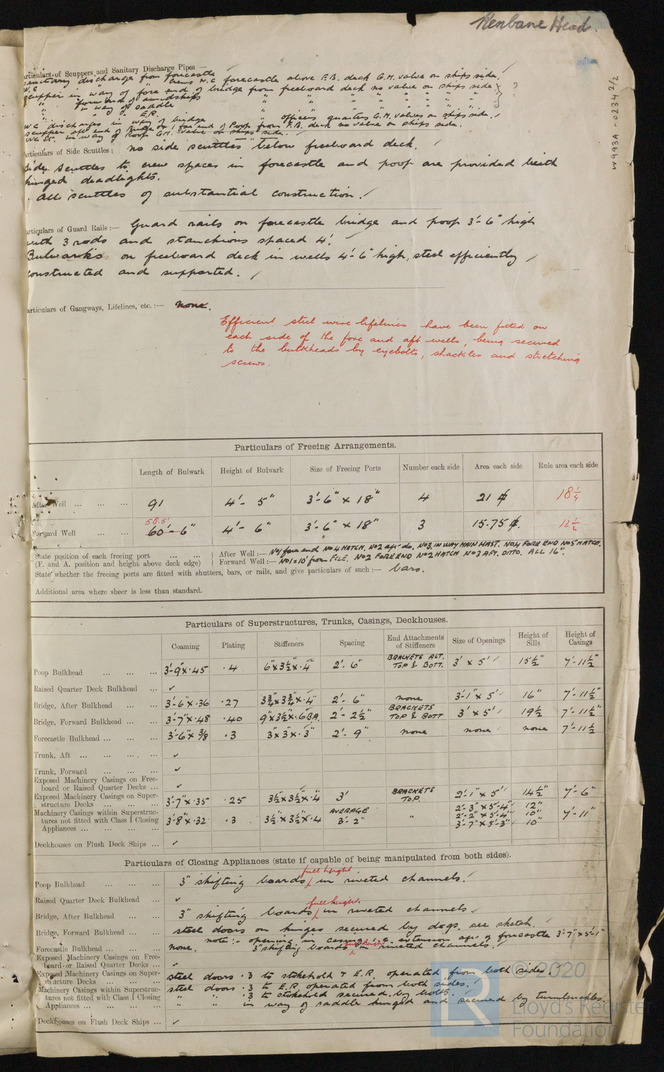 Kenbane Head.
W993A - 0234 2/2
articulars of Scuppers and Sanitary Discharge Pipes —
sanitary discharge from forecastle
W.C. " " crew W.C. forecastle above F.B. deck G.M. valve on ships side.
scupper in way of fore end of bridge from freeboard deck no valve on ships side
" forward of amidships " " " " " " "
" " way of saddle " " " " " " "
" " " E.R. " " " " " " "
W.C. discharges in way of bridge officers quarters G.M. valves on ships side.
scupper aft end of Bridge and fore end of Poop from F.B. deck no valve on ships side.
in way of Poop G.M. valve on ships side.
articulars of Side Scuttles: no side scuttles below freeboard deck.
Side Scuttles to crew spaces in forecastle and poop are provided with
hinged deadlights.
All scuttles of substantial construction.
articulars of Guard Rails :— Guard rails on forecastle bridge and poop 3'-6" high
with 3 rods and stanchions spaced 4'.
Bulwarks on freeboard deck in wells 4'-6" high, steel efficiently
constructed and supported.
articulars of Gangways, Lifelines, etc. :— none.
Efficient steel wire lifelines have been fitted on
each side of the fore and aft wells, being secured
to the bulkheads by eyebolts, shackles and stretching
screws.
Particulars of Freeing Arrangements.
Length of Bulwark Height of Bulwark Size of Freeing Ports Number each side Area each side Rule area each side
After Well ... ... ... 91 4'- 5" 3'-6" x 18" 4 21 18½
58.5'
Forward Well ... ... 60'-6" 4'- 6" 3'-6" x 18" 3 15.75 12½
State position of each freeing port ... ... After Well :— No1 fore end No4 HATCH, No2 aft do, No3, IN WAY MAIN MAST. No4 FORE END No5 HATCH.
(F. and A. position and height above deck edge) Forward Well :— No1=10' from F'CLE. No2 FORE END No2 HATCH No3 AFT. DITTO. ALL 16".
State whether the freeing ports are fitted with shutters, bars, or rails, and give particulars of such :— bars.
Additional area where sheer is less than standard.
Particulars of Superstructures, Trunks, Casings, Deckhouses.
Coaming Plating Stiffeners Spacing End Attachments of Stiffeners Size of Openings Height of Sills Height of Casings
Poop Bulkhead ... ... ... 3'-9"x.45 .4 6"x3½"x.4" 2'-6" BRACKETS ALT. TOP & BOTT. 3' x 5' 15½" 7'-11½"
Raised Quarter Deck Bulkhead ... ✓
Bridge, After Bulkhead ... ... 3'-6"x.36 .27 3¾"x3¾"x.4" 2'-6" none 3'-1"x 5' 16" 7'-11½"
Bridge, Forward Bulkhead ... ... 3'-7"x.48 .40 9"x3½"x.6BA 2'-2½" BRACKETS TOP & BOTT 3' x 5' 19½ 7'-11½"
Forecastle Bulkhead ... ... ... 3'-6"x ⅜ .3 3"x3"x.3" 2'-9" none none none 7'-11½
Trunk, Aft ... ... ... ... ✓
Trunk, Forward ... ... ... ✓
Exposed Machinery Casings on Free-
board or Raised Quarter Decks ... ✓
Exposed Machinery Casings on Super-
structure Decks ... ... ... 3'-7"x.35 .25 3½x3½x.4 3' BRACKETS TOP. 2'-1"x 5' 14½" 7'-6"
Machinery Casings within Superstruc-
tures not fitted with Class I Closing
Appliances ... ... ... ... 3'-8"x.32 .3 3½"x3½"x.4 AVERAGE 3'-2" " 2'-3"x5'-4" 12" 7'-11"
2'-2"x5'-4" 10"
3'-7"x5'-3" 10"
Deckhouses on Flush Deck Ships ... ✓
Particulars of Closing Appliances (state if capable of being manipulated from both sides).
Poop Bulkhead ... ... ... 3" shifting boards full height in riveted channels.
Raised Quarter Deck Bulkhead ... ✓
Bridge, After Bulkhead ... ... 3" shifting boards full height in riveted channels.
Bridge, Forward Bulkhead ... ... steel doors on hinges secured by dogs. see sketch.
note :- opening in extension aft of forecastle 3'-7"x5'-1"
Forecastle Bulkhead ... ... ... none. 3" shifting boards riveted channels.
Exposed Machinery Casings on Free-
board or Raised Quarter Decks ... ✓
Exposed Machinery Casings on Super-
structure Decks ... ... ... steel doors .3 to stokehold & E.R. operated from both sides
Machinery Casings within Superstruc-
tures not fitted with Class I Closing
Appliances ... ... ... ... steel doors .3 to E.R. operated from both sides.
" " .3 to stokehold secured by bolts.
" " in way of saddle hinged and secured by turnbuckles.
Deckhouses on Flush Deck Ships ... ✓
© 2020
Lloyd's Register
Foundation